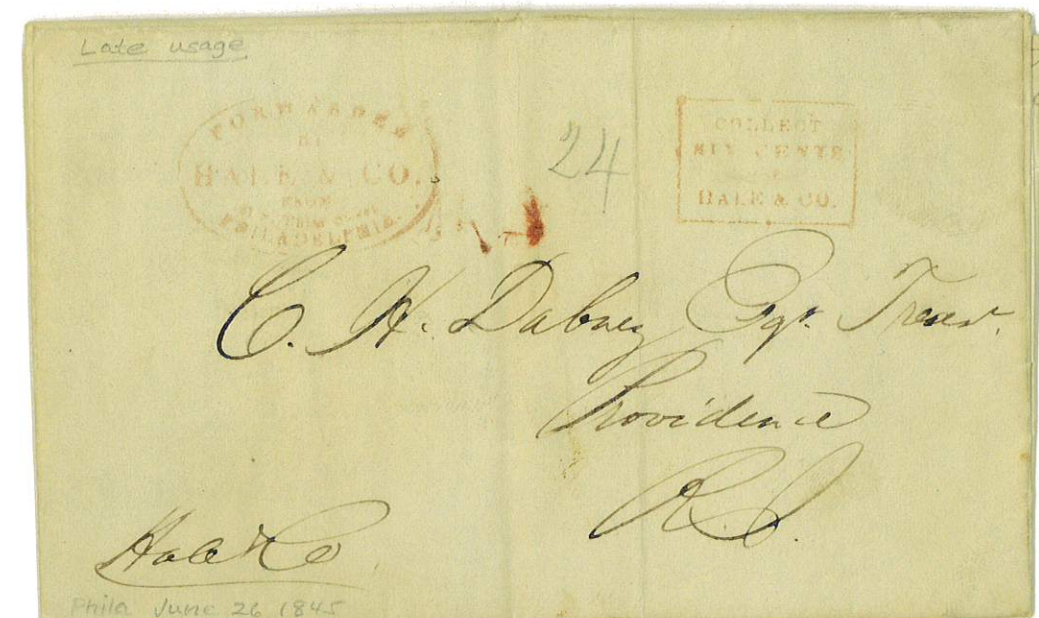 Late usage
FORWARDED
BY
HALE & CO.
FROM
PHILADELPHIA.
24
COLLECT
SIX CENTS
HALE & CO.
C. H. Dabney Esqr. Treasr.
Providence
R. I.
Hale & Co.
Phila June 26 1845